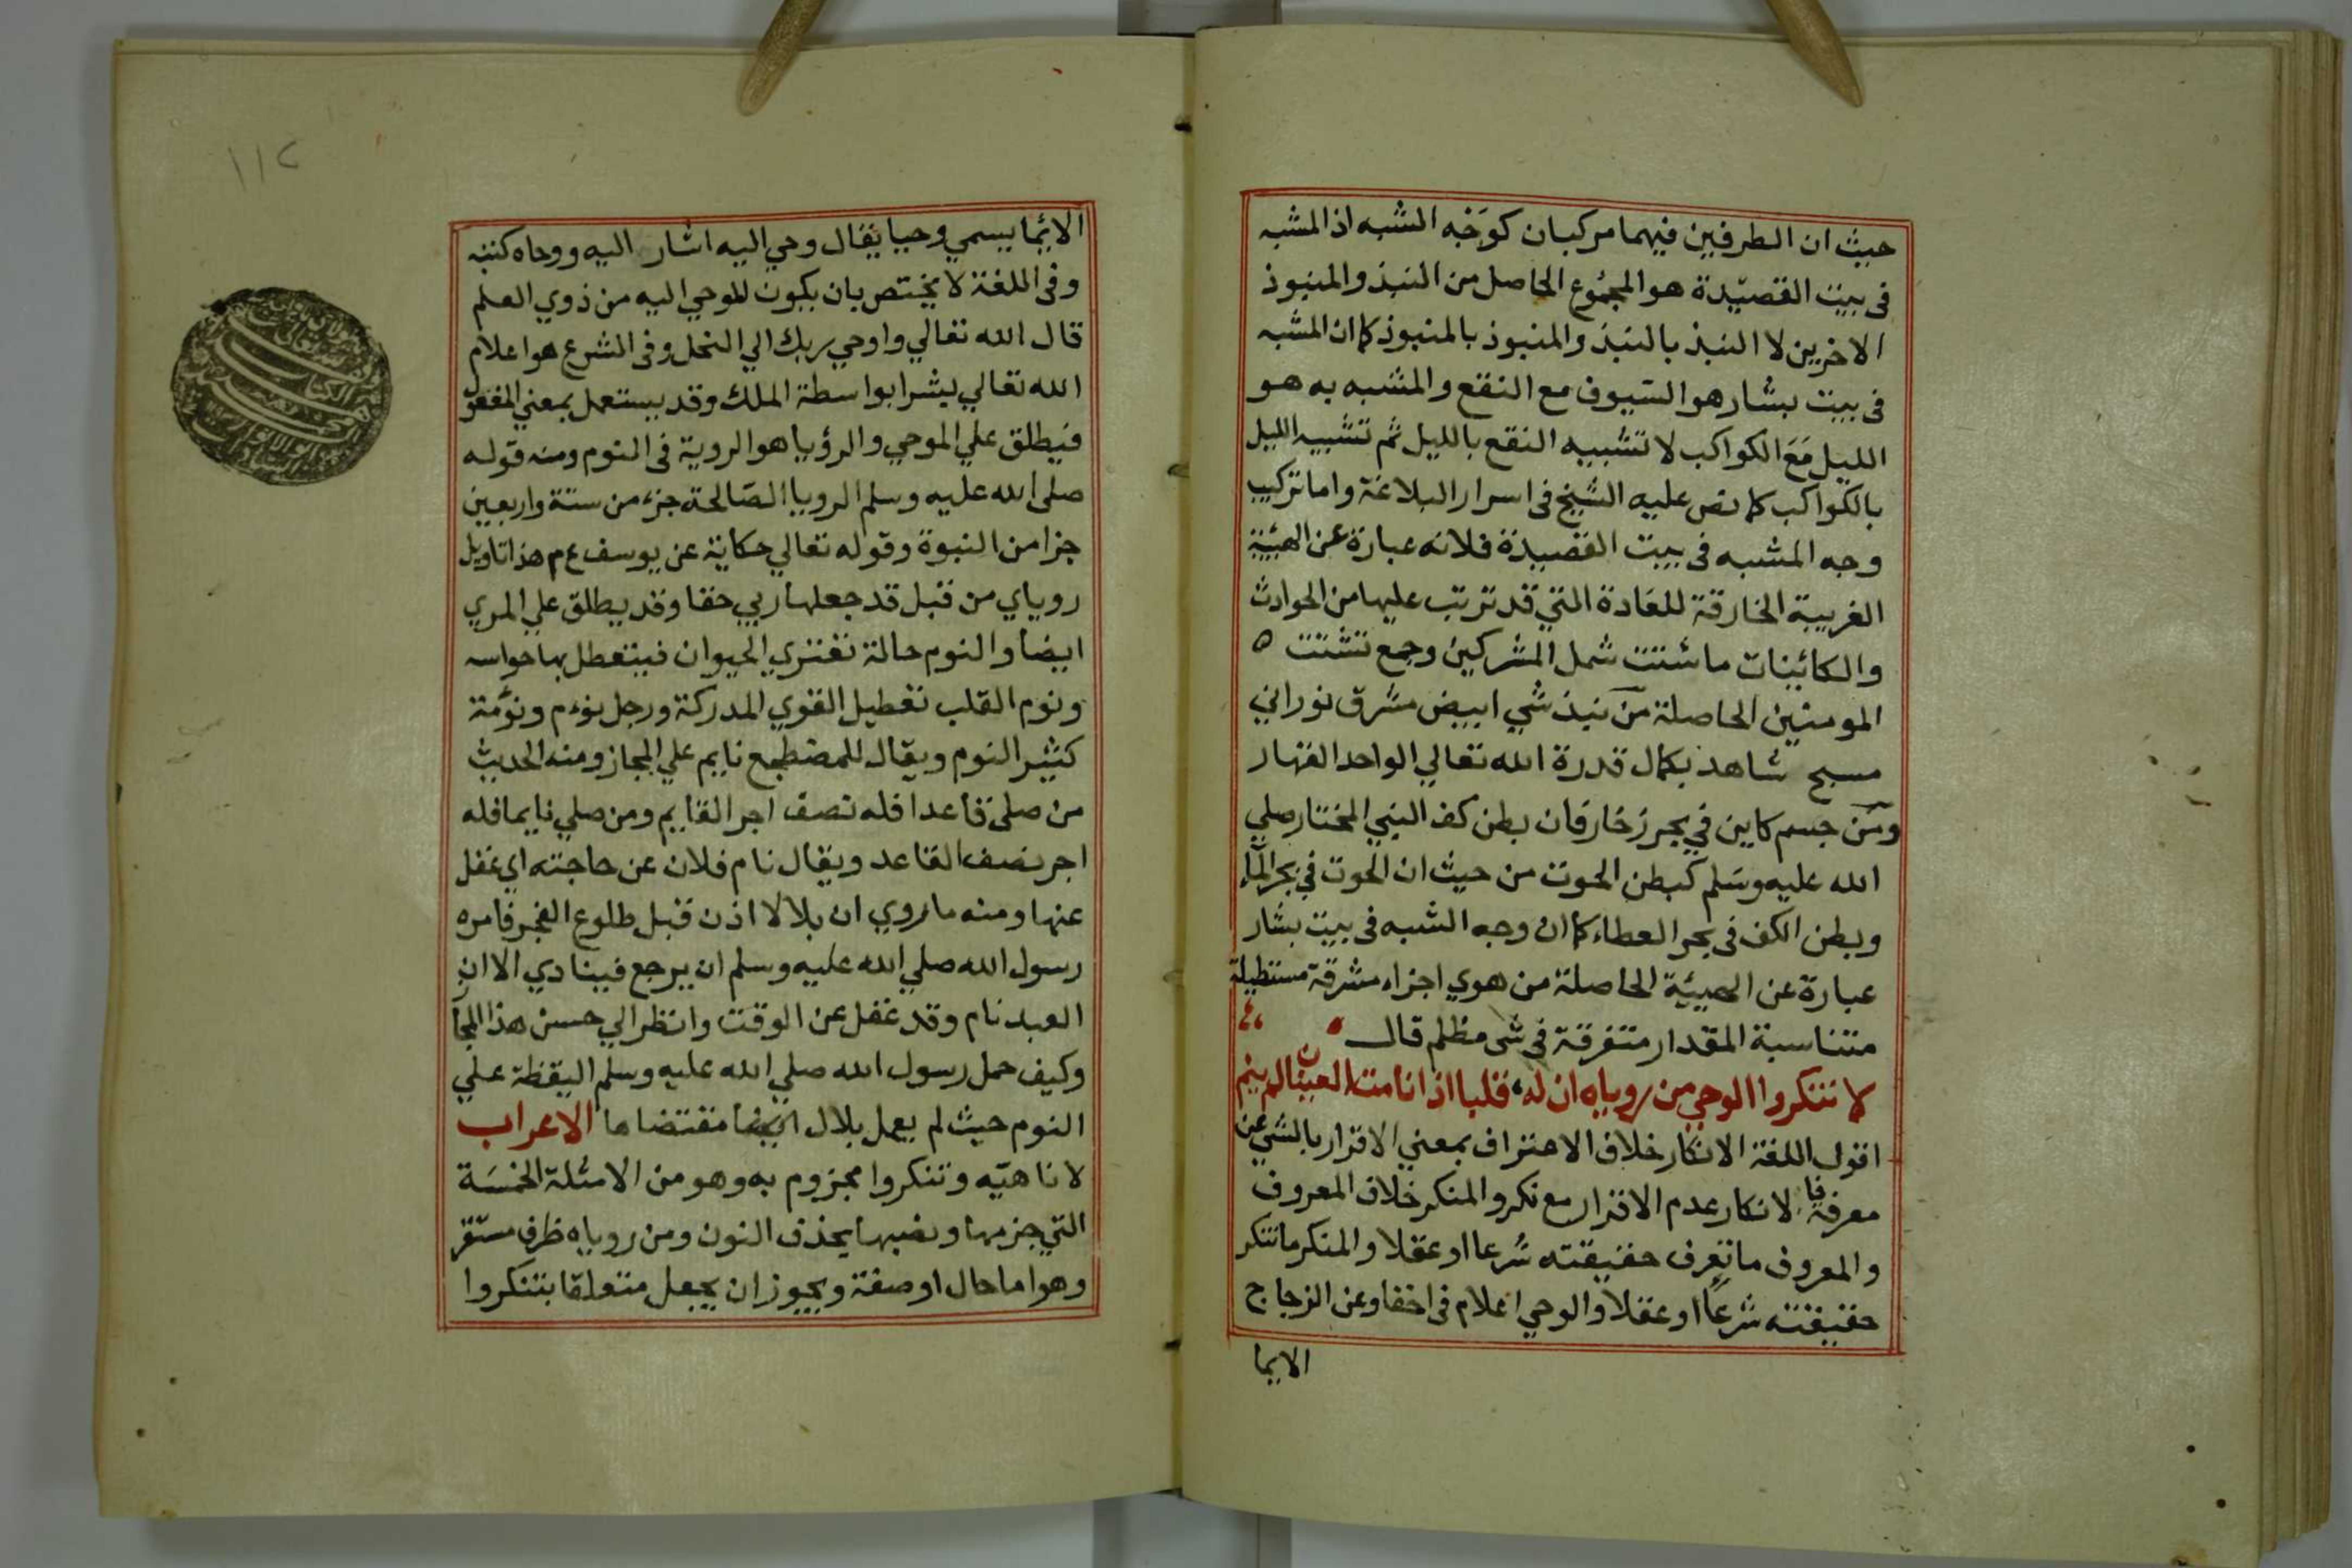 حيث ان الطرفين فيهما مركبان كوَجْه الشبه اذ المشبه
فى بيت القصيدة هو المجمُوع الحاصل من النبذ والمنبوذ
الاخرين لا النبذ بالنبذ والمنبوذ بالمنبوذ كما ان المشبه
فى بيت بشار هو السيوف مع النقع والمشبه به هو
الليل مَعَ الكواكب لا تشبيه النقع بالليل ثم تشبيه الليل
بالكواكب كما نص عليه الشيخ فى اسرار البلاغة واما تركيب
وجه المشبه فى بيت القصيدة فلانه عبارة عن الهيئة
الغريبة الخارقة للعادة التي قد ترتب عليها من الحوادث
والكائينات ما شتت شمل المشركين وجمع تشتت ه
المومنين الحاصلة من نبذ شي ابيض مشرق نوراني
مسبح شاهد بكمال قدرة الله تعالي الواحد القهار
ومن جسم كاين في بحر زخار فان بطن كف النبي المختار صلي
الله عليه وسَلم كبطن الحوت من حيث ان الحوت في بحر الماء
وبطن الكف فى بحر العطاء كما ان وجه الشبه فى بيت بشار
عبارة عن الهيئية الحاصلة من هوي اجزاء مشرقة مستطيلة
متناسبة المقدار متفرقة فى شى مظلم قال
لا تنكروا الوحي من روياه ان له قلبا اذا نامت العينان لم ينم
اقول اللغة الانكار خلاف الاعتراف بمعني الاقرار بالشي عن
معرفة فالانكار عدم الاقرار مع نكر والمنكر خلاف المعروف
والمعروف ما تعرف حقيقته شرعا او عقلا والمنكر ما تنكر
حقيقته شرعًا او عقلا والوحي اعلام فى اخفا وعن الزجاج
الايما
١١٢
الائما يسمي وحيا يقال وحي اليه اشار اليه ووحاه كتبه
وفى اللغة لا يختص بان يكون للموحي اليه من ذوي العلم
قال الله تعالي واوحي ربك الي النحل وفى الشرع هو اعلام
الله تعالي بشرا بواسطة الملك وقد يستعمل بمعني المفعول
فيطلق علي الموحي والرؤيا هو الروية فى النوم ومنه قوله
صلى الله عليه وسلم الرويا الصالحة جزء من ستة واربعين
جزا من النبوة وقوله تعالي حكاية عن يوسف عم هذا تاويل
روياي من قبل قد جعلها ربي حقا وقد يطلق علي المري
ايضا والنوم حالة تعتري الحيوان فيتعطل بها حواسه
ونوم القلب تعطيل القوي المدركة ورجل نوءم ونوَّمة
كثير النوم ويقال للمضطجع نايم علي المجاز ومنه الحديث
من صلى قاعدا فله نصف اجر القايم ومن صلي نايما فله
اجر نصف القاعد ويقال نام فلان عن حاجته اي غفل
عنها ومنه ما روي ان بلالا اذن قبل طلوع الفجر فامره
رسول الله صلي الله عليه وسلم ان يرجع فينادي الا ان
العبد نام وقد غفل عن الوقت وانظر الي حسن هذا المجا
وكيف حمل رسول الله صلي الله عليه وسلم اليقظة علي
النوم حيث لم يعمل بلال مقتضاها الاعراب
لا ناهيّه وتنكروا مجزوم به وهو من الامثلة الخمسَة
التي جزمها ونصبها بحذف النون ومن روياه ظرف مستقر
وهو اما حال او صفة ويجوز ان يجعل متعلقا بتنكروا